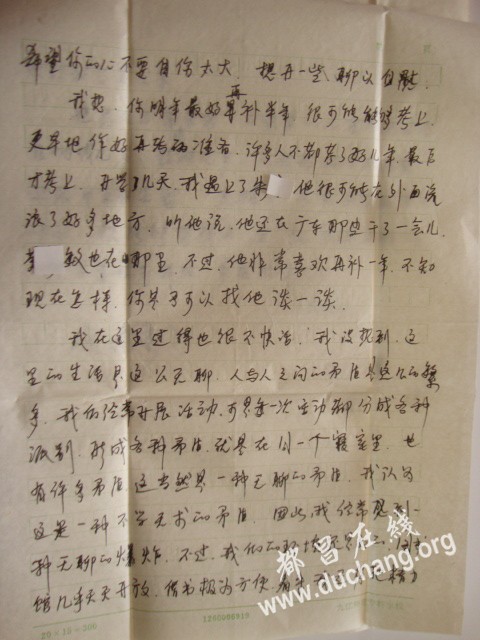 希望你的心不要自伤太大，想开一些聊以自慰。
我想，你明年最好再补半年，很可能能够考上，
更早地作好再考的准备。许多人不都考了好几年，最后
才考上。开学几天，我遇上了朱 ，他很可能在外面流
浪了好多地方，听他说，他还在广东那边干了一会儿，
敏也在哪里，不过，他非常喜欢再补一年，不知
现在怎样，你是否可以找他谈一谈。
我在这里过得也很不快活，我没想到，这
里的生活是这么无聊，人与人之间的矛盾是这么的繁
多。我们经常开展活动，可是每一次活动都分成各种
派别，形成各种矛盾，就是在同一个寝室里，也
有许多矛盾，这当然是一种无聊的矛盾，我认为
这是一种不学无术的矛盾。因此，我经常遇到一
种无聊的爆炸。不过，我们的
馆几乎天天开放，借书极为方便，
都昌在线
www.duchang.org
20×15=300